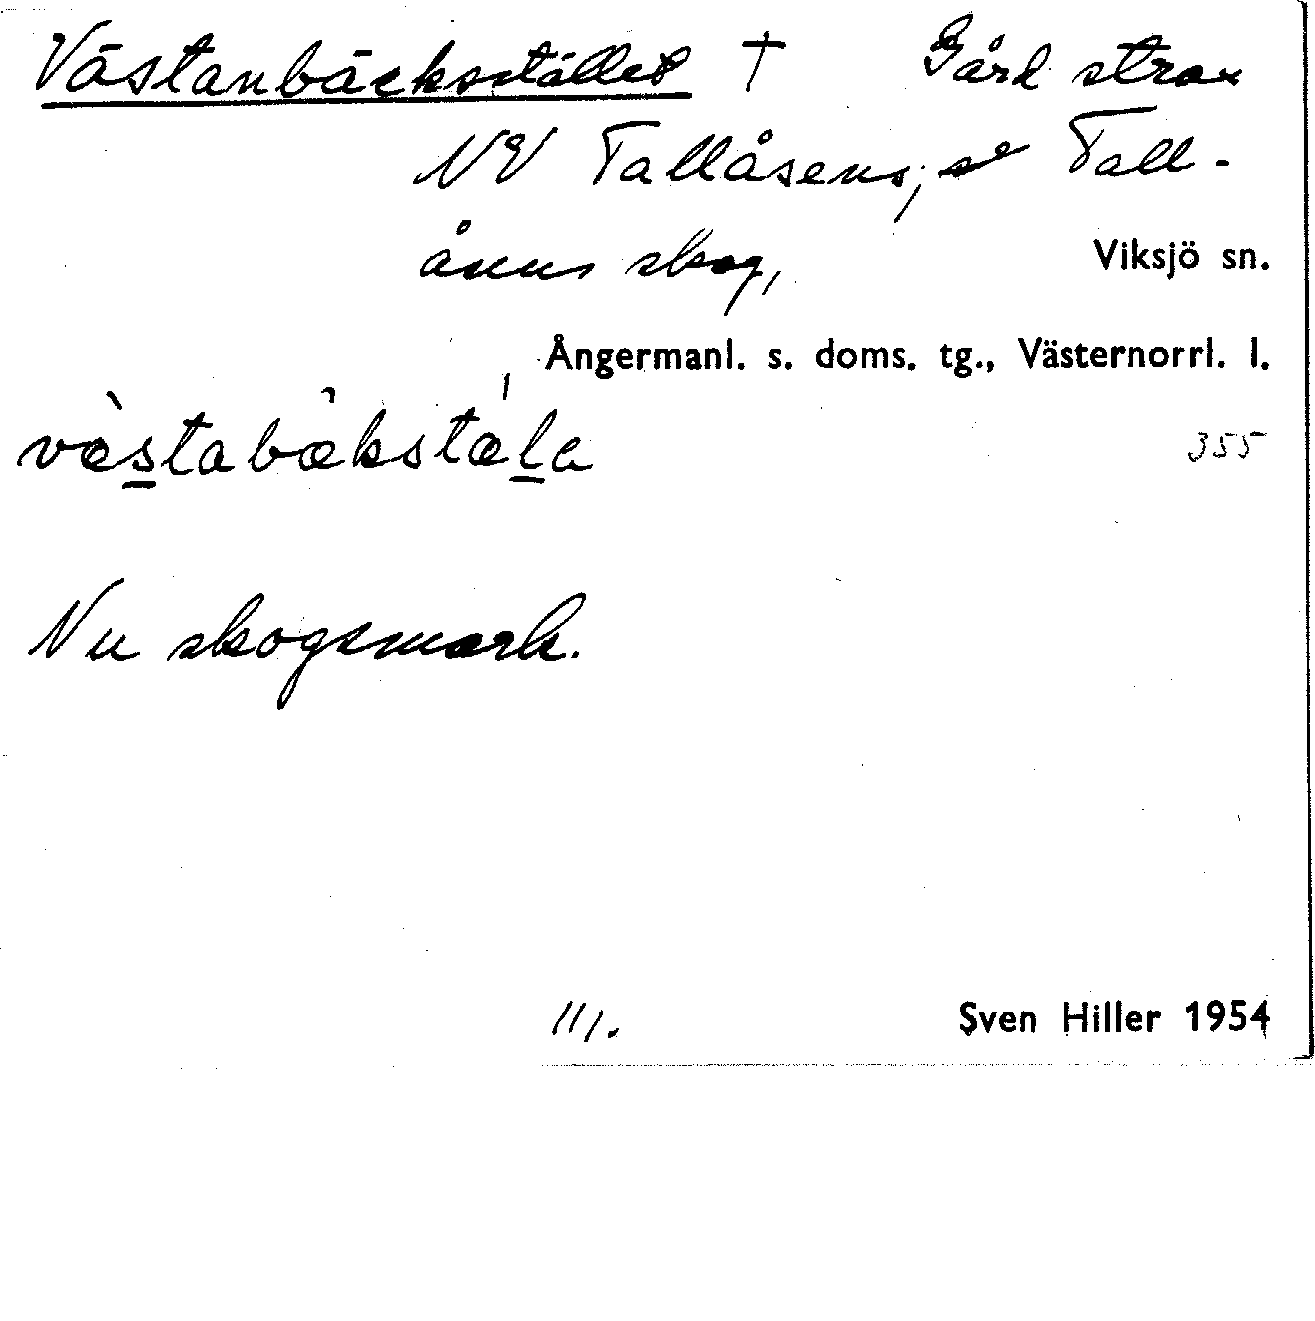 Västanbäcksstället † Gård strax
NV Tallåsens, se Tall-
åsens skog,
Viksjö sn.
Ångermanl. s. doms. tg., Västernorrl. l.
355
Nu skogsmark.
Sven Hiller 1954